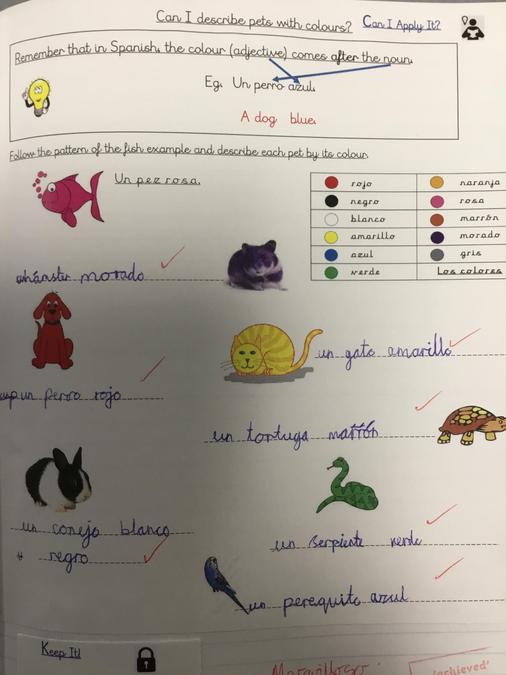 Can I describe pets with colours? Can I Apply It?
Remember that in Spanish, the colour (adjective) comes after the noun.
Eg. Un perro azul.
A dog blue.
Follow the pattern of the fish example and describe each pet by its colour.
Un pez rosa.
rojo naranja
negro rosa
blanco marrón
amarillo morado
azul gris
verde Los colores
hámster morado
un gato amarillo
un perro rojo
un tortuga marrón
un conejo blanco
negro
un serpiente verde
un perequito azul
Keep It!
'achieved'